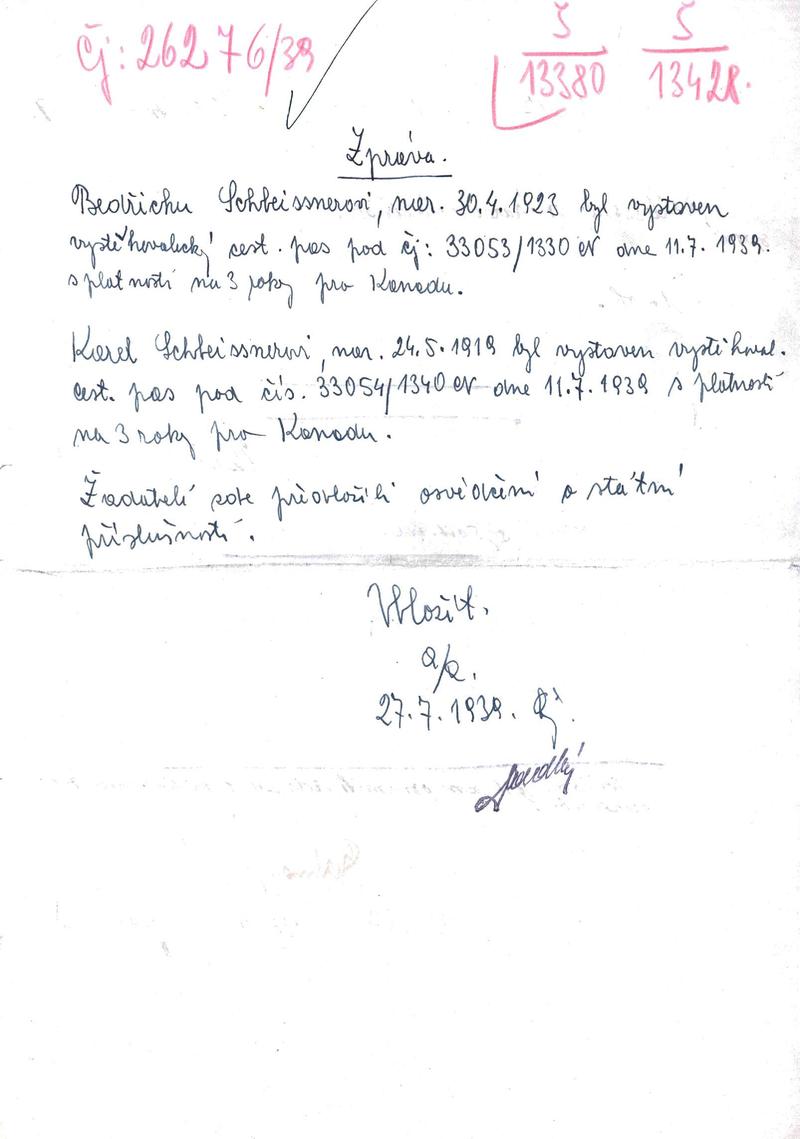 čj: 26276/39
Š Š
13380 13428.
Zpráva.
Bedřichu Schleissnerovi, nar. 30.4.1923 byl vystaven
vystěhovalecký cest. pas pod čj: 33053/1330 dne 11.7.1939.
s platností na 3 roky pro Kanadu.
Karel Schleissnerovi, nar. 24.5.1919 byl vystaven vystěhoval.
cest. pas pod čís. 33054/1340 dne 11.7.1939 s platností
na 3 roky pro Kanadu.
Žadatelé zde předložili osvědčení o státní
příslušnosti.
Vložit.
a/a.
27.7.1939.